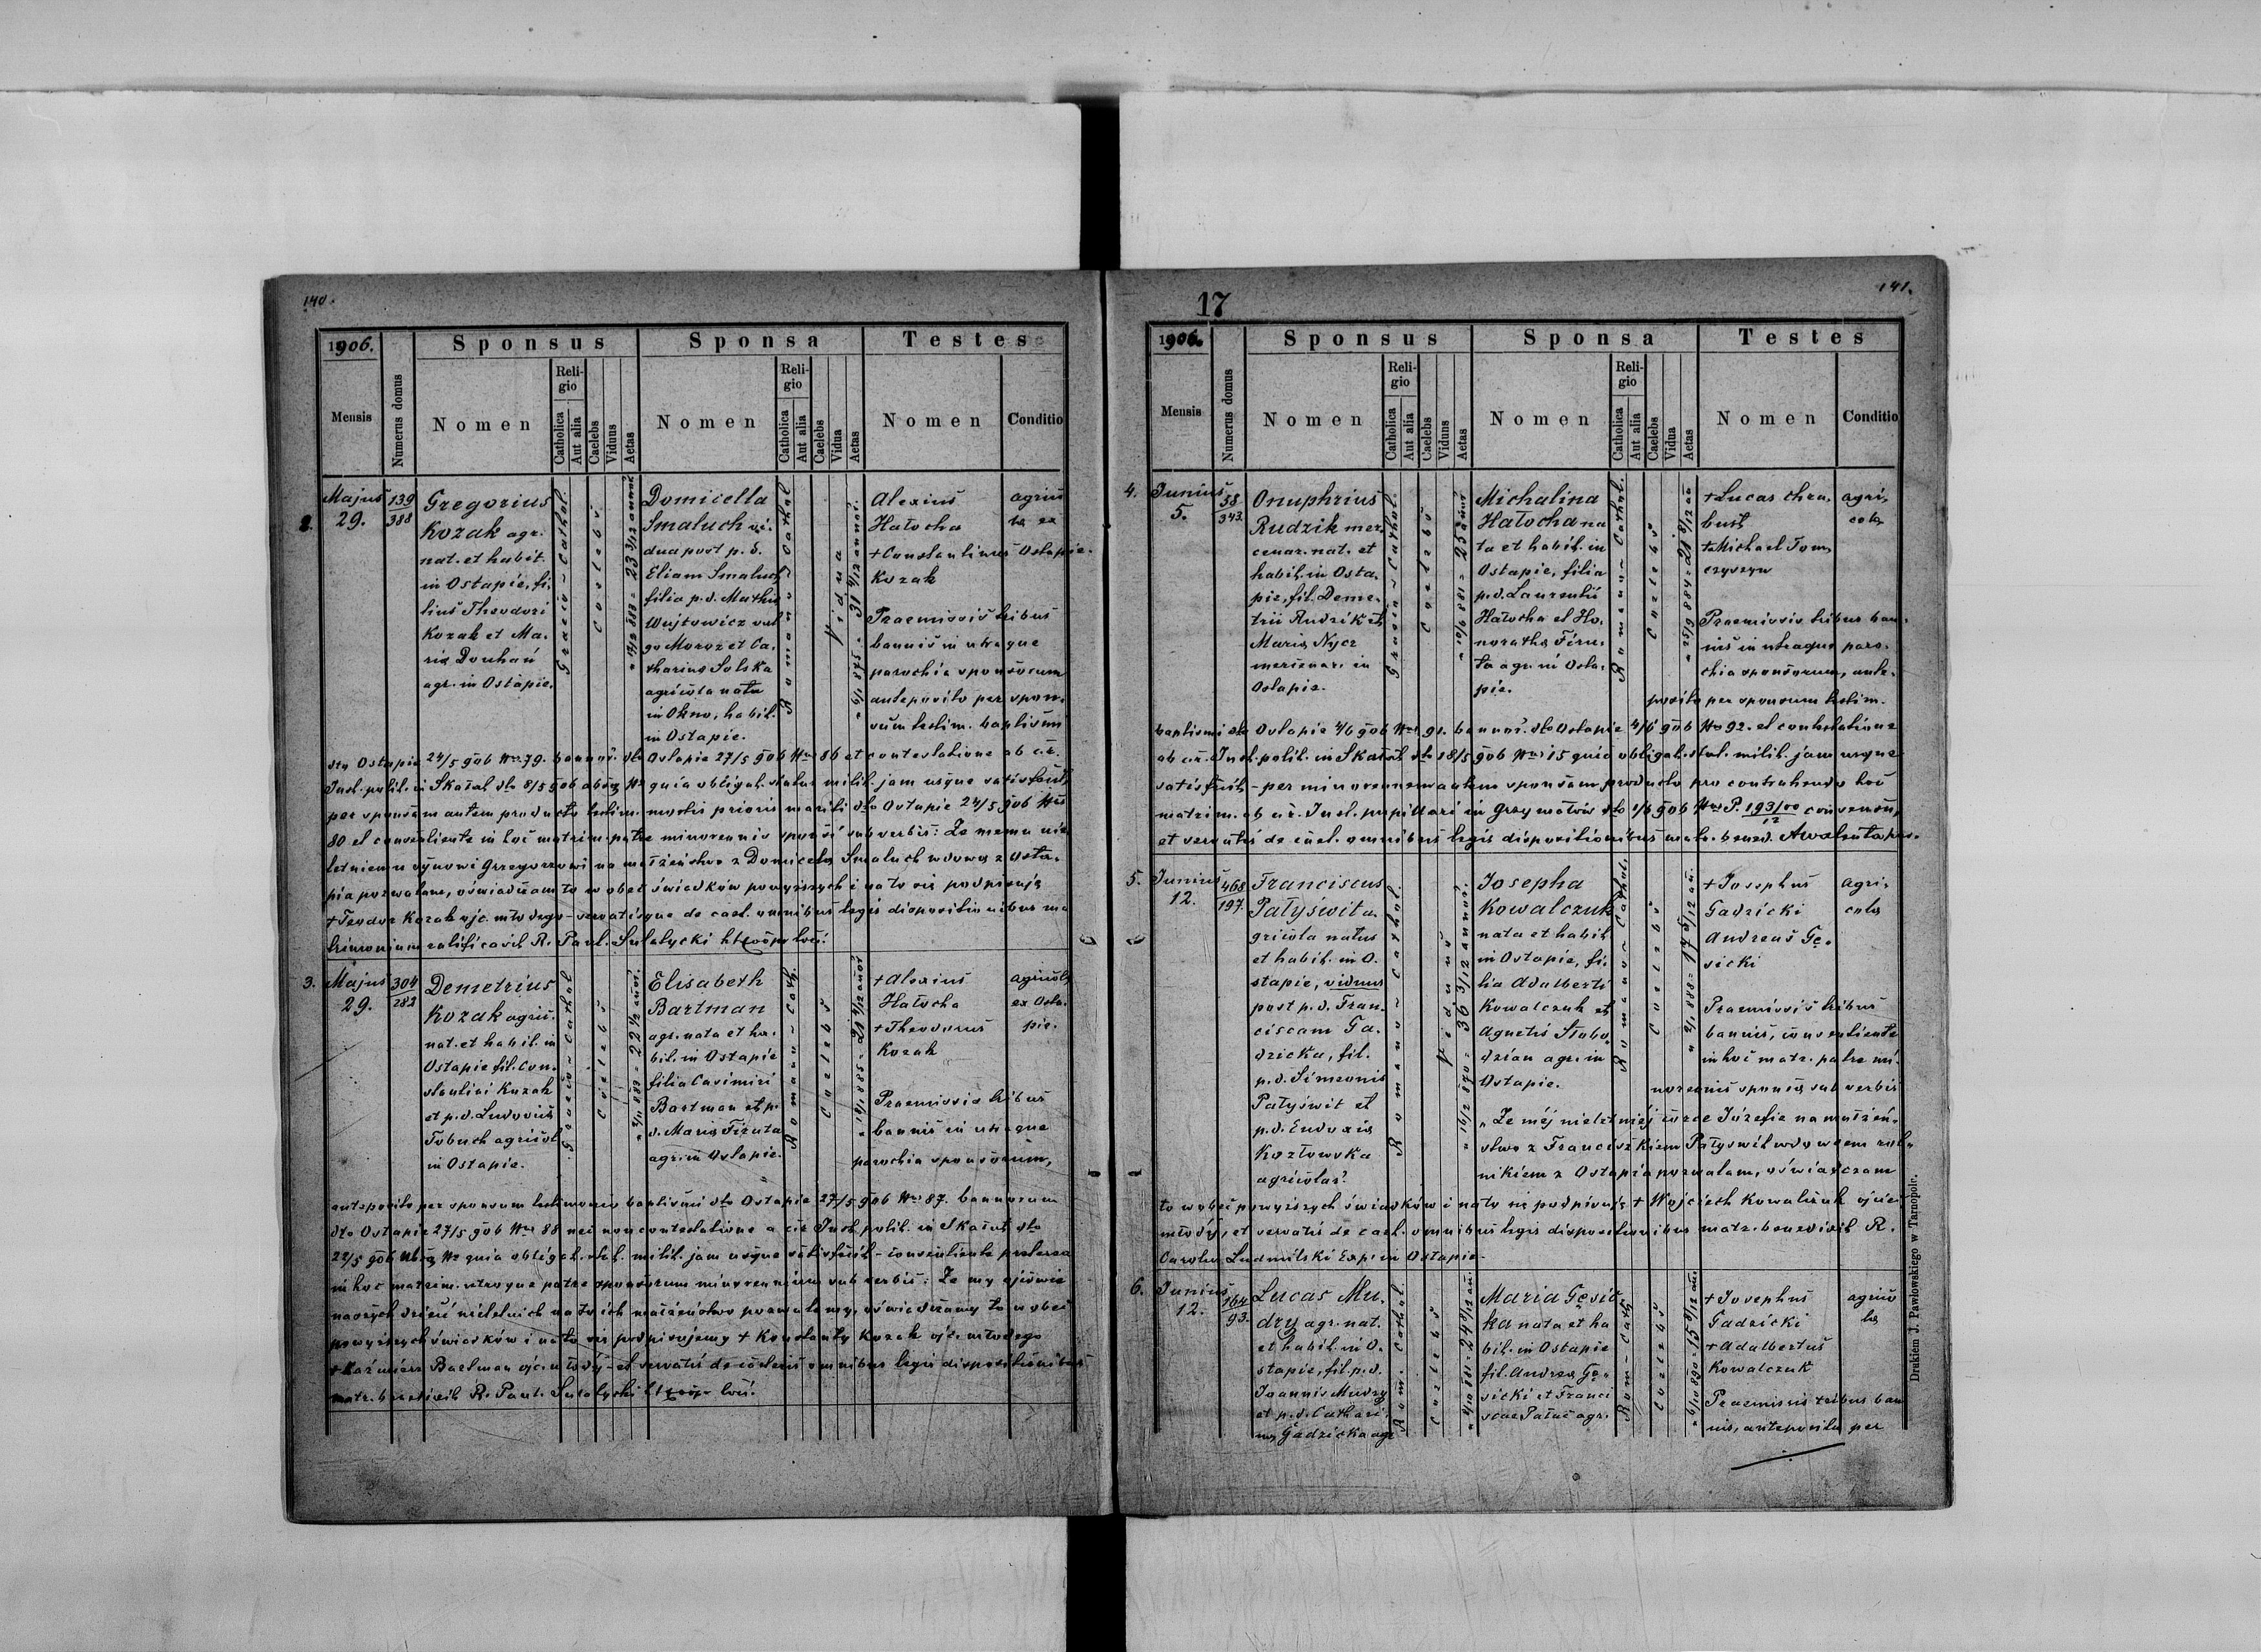 140.
1906.
Sponsus
Sponsa
Testes
Mensis
Numerus domus
Nomen
Religio
Catholica
Aut alia
Caelebs
Viduus
Aetas
Nomen
Religio
Catholica
Aut alia
Caelebs
Vidua
Aetas
Nomen
Conditio
2.
Majus
29.
139
388
Gregorius
Kozak agr.
nat. et habit.
in Ostapie, fi-
lius Theodori
Kozak et Ma-
ria Douhań
agr. in Ostapie.
Graeco-Cathol.
Coelebs
Domicella
Smaluch vi-
dua post p.d.
Eliam Smaluch
filia p.d. Mathia
Wojtowicz vul
go Moroz et Ca-
tharina Solska
agricola nata
in Okno, habit.
in Ostapie.
Romano Cathol
Vidua
Alexius
Hałocha
+Constantinus
Kozak
Praemissis tribus
bannis in utraque
parochia sponsorum
anteposito per spon-
sum testim. baptismi
Ostapie.
dto Ostapie 24/5 906 Nro 79. bannor. dto Ostapie 27/5 906 Nro 86 et contestatione ab c.r.
Inst. polit. in Skałat dto 8/5 906 absq Nr quia obligat. status milit. jam usque satisfecit
per sponsam autem producto testim. mortis prioris mariti dto Ostapie 24/5 906 Nro
80 et consentiente in hoc matrim. patre minorennis sponsi sub verbis: Że memu nie
letniemu synowi Grzegorzowi na małżeństwo z Domicelą Smaluch wdową z Osta-
pia pozwalam, oświadczam to w obec świadków powyższych i na to się podpisuję
+Teodor Kozak ojc. młodego - servatisque de cael. omnibus legis dispositionibus ma
trimonium ratificavit R. Paul. Sulatycki
3.
Majus
29.
304
282
Demetrius
Kozak agric.
nat. et habil. in
Ostapie fil. Con-
stantini Kozak
et p.d. Ludovica
Tobuch agricol
in Ostapie.
Graeco-Cathol
Coelebs
Elisabeth
Bartman
agr. nata et ha-
bil. in Ostapie
filia Casimiri
Bartman et p.
d. Maria Firuta
agr. in Ostapie.
Romano-Cath.
Coelebs
+Alexius
Hałocha
+Theodorus
Kozak
Praemissis tribus
bannis in utraque
parochia sponsorum,
agricola
ex Osta-
pie.
anteposito per sponsum testimonio baptismi dto Ostapie 27/5 906 Nro 87. bannorum
dto Ostapie 27/5 906 Nro 88 nec non contestatione a c.r. Inst. polit. in Skałat dto
22/5 906 absq Nr quia obligat. stat. milit. jam usque satisfecit - consentiente praeterea
in hoc matrim. utroque patre sponsorum minorennium sub verbis: Że my ojcowie
naszych dzieci nieletnich na to ich małżeństwo pozwalamy, oświadczamy to w obec
powyższych świadków i na to się podpisujemy + Konstanty Kozak ojc. młodego
+Kaźmierz Bartman ojc. młodej - et servatis de caeteris omnibus legis dispositionibus
matr. benedixit R. Paul. Sulatycki
17
141.
1906.
Sponsus
Sponsa
Testes
Mensis
Numerus domus
Nomen
Religio
Catholica
Aut alia
Caelebs
Viduus
Aetas
Nomen
Religio
Catholica
Aut alia
Caelebs
Vidua
Aetas
Nomen
Conditio
4.
Junius
5.
58
343.
Onuphrius
Rudzik mer-
cenar. nat. et
habil. in Osta-
pie, fil. Deme-
trii Rudzik et
Maria Nycz
mercenar. in
Ostapie.
Graeco-Cathol.
Coelebs
Michalina
Hałocha na
ta et habil. in
Ostapie, filia
p.d. Laurentii
Hałocha et Ho-
norata Firu-
ta agr. in Osta-
pie.
Romano-Cathol.
Coelebs
+Lucas Chra-
bust
+Michael Tom-
czyszyn
Praemissis tribus ban-
nis in utraque paro-
chia sponsorum, ante-
posito per sponsum testim.
agri-
cola
baptismi dto Ostapie 4/6 906 Nro 91. bannor. dto Ostapie 4/6 906 Nro 92. et contestatione
ab c.r. Inst. polit. in Skałat dto 18/5 906 Nro 15 quia obligat. stat. milit. jam usque
satisfecit - per minorennem autem sponsam producto pro contrahendo hoc
matrim. ab c.r. Inst. pupillari in Grzymałów dto 1/6 906 Nro P. 193/00/12 consensu,
et servatis de cael. omnibus legis dispositionibus matr. bened.
5.
Junius
12.
468
197.
Franciscus
Pałyświt a-
gricola natus
et habil. in O-
stapie, viduus
post p.d. Fran-
ciscam Ga-
dzicka, fil.
p.d. Simeonis
Pałyświt et
p.d. Eudoxia
Kozłowska
agricolas.
Romano-Cathol.
Viduus
Josepha
Kowalczuk
nata et habil
in Ostapie, fi-
lia Adalberti
Kowalczuk et
Agnetis Słobo-
dzian agr. in
Ostapie.
Romano-Cathol.
Coelebs
+Josephus
Gadzicki
Andreas Gę-
sicki
Praemissis tribus
bannis, consentiente
in hoc matr. patre mi-
norennis sponsa sub verbis
agri-
cola
„Że mej nieletniej córce Józefie na małżeń-
stwo z Franciszkiem Pałyświt wdowcem rol-
nikiem z Ostapia pozwalam, oświadczam
to w obec powyższych świadków i na to się podpisuję + Wojciech Kowalczuk ojciec
młodej, et servatis de cael. omnibus legis dispositionibus matr. benedixit R.
Carolus Ludmilski Exp. in Ostapie.
6.
Junius
12.
164
93.
Lucas Mu-
dry agr. nat.
et habil. in O-
stapie, fil. p.d.
Joannis Mudry
et p.d. Cathari
na Gadzicka agr
Rom. Cathol.
Coelebs
Maria Gęsic
ka nata et ha
bil. in Ostapie
fil. Andrea Gę-
sicki et Franci
scae Pałac agr.
Rom-Cath.
Coelebs
+Josephus
Gadzicki
+Adalbertus
Kowalczuk
Praemissis tribus ban
nis, anteposito per
agrico
la
Drukiem J. Pawłowskiego w Tarnopolu.